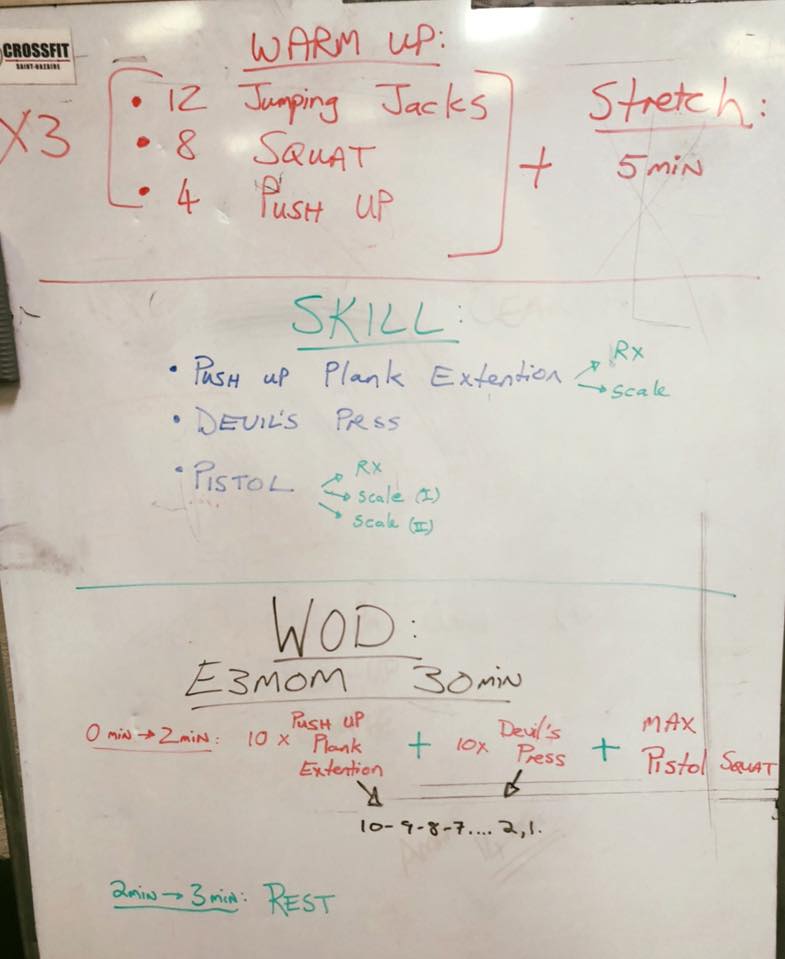 CROSSFIT
SAINT-NAZAIRE
WARM UP:
X3
• 12 Jumping Jacks
• 8 SQUAT
• 4 PUSH UP
+
Stretch:
5 min
SKILL:
• PUSH UP Plank Extention → Rx
→ scale
• DEVIL'S PRSS
• PISTOL → Rx
→ scale (I)
→ scale (II)
WOD:
E3MOM 30min
0 min → 2 min: 10 x PUSH UP Plank Extention + 10x Devil's Press + MAX Pistol SQUAT
10-9-8-7.... 2,1.
2min → 3 min: REST